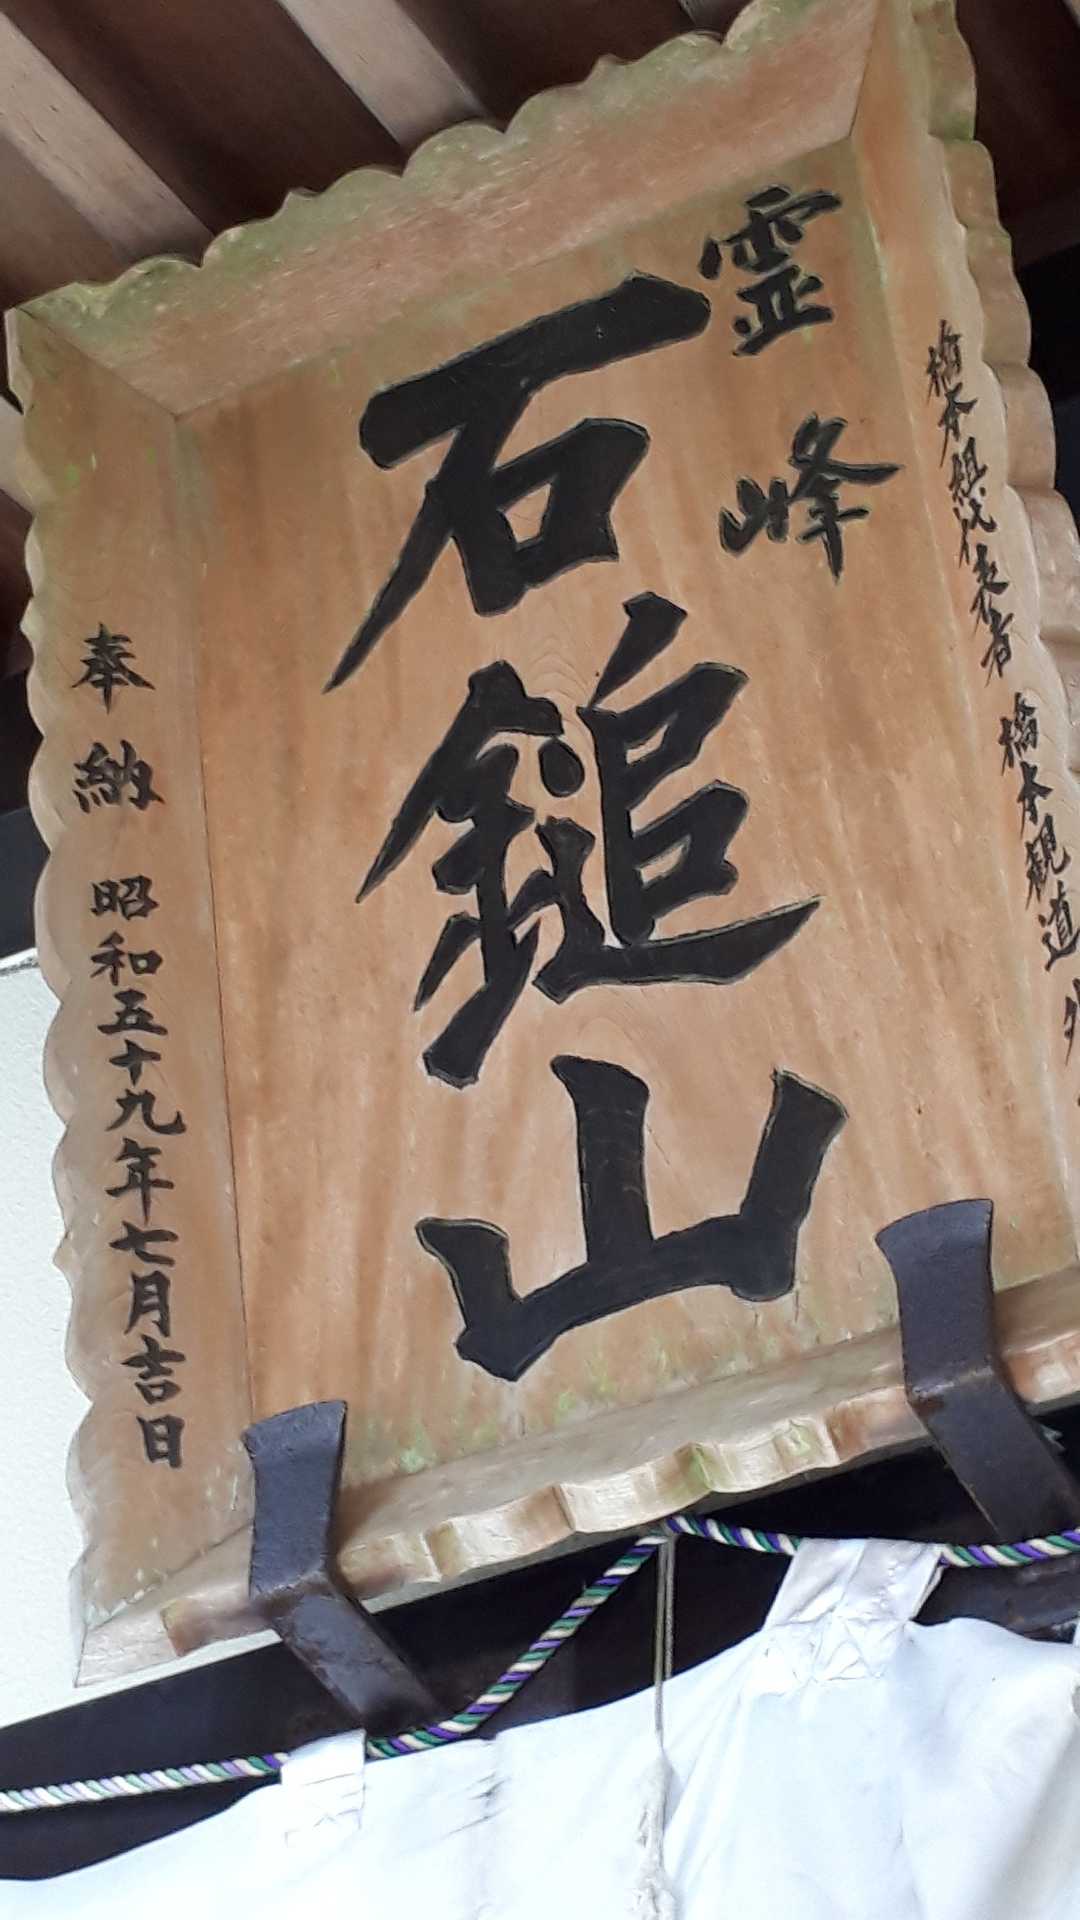 橋本組代表者 橋本観道
霊峰
石鎚山
奉納 昭和五十九年七月吉日